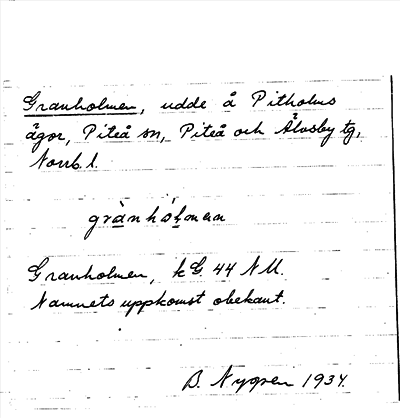 Granholmen, udde å Pitholms
ägor, Piteå sn, Piteå och Älvsby tg,
Norrb. l.
grànhólmen
Granholmen, k G. 44 NU.
Namnets uppkomst obekant.
B. Nygren 1934.